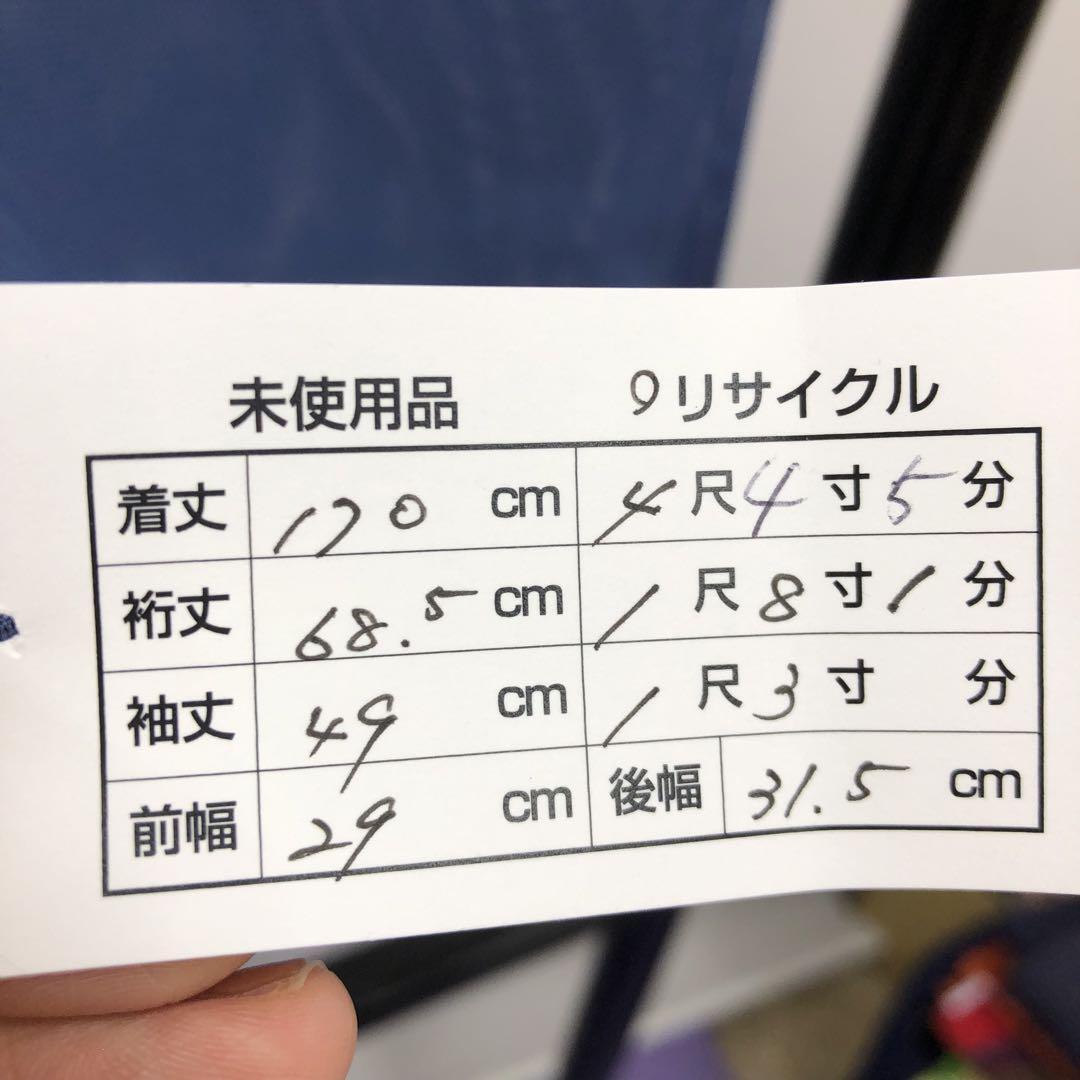 未使用品 9リサイクル
着丈 170 cm 4尺4寸5分
裄丈 68.5 cm 1尺8寸1分
袖丈 49 cm 1尺3寸 分
前幅 29 cm 後幅 31.5 cm